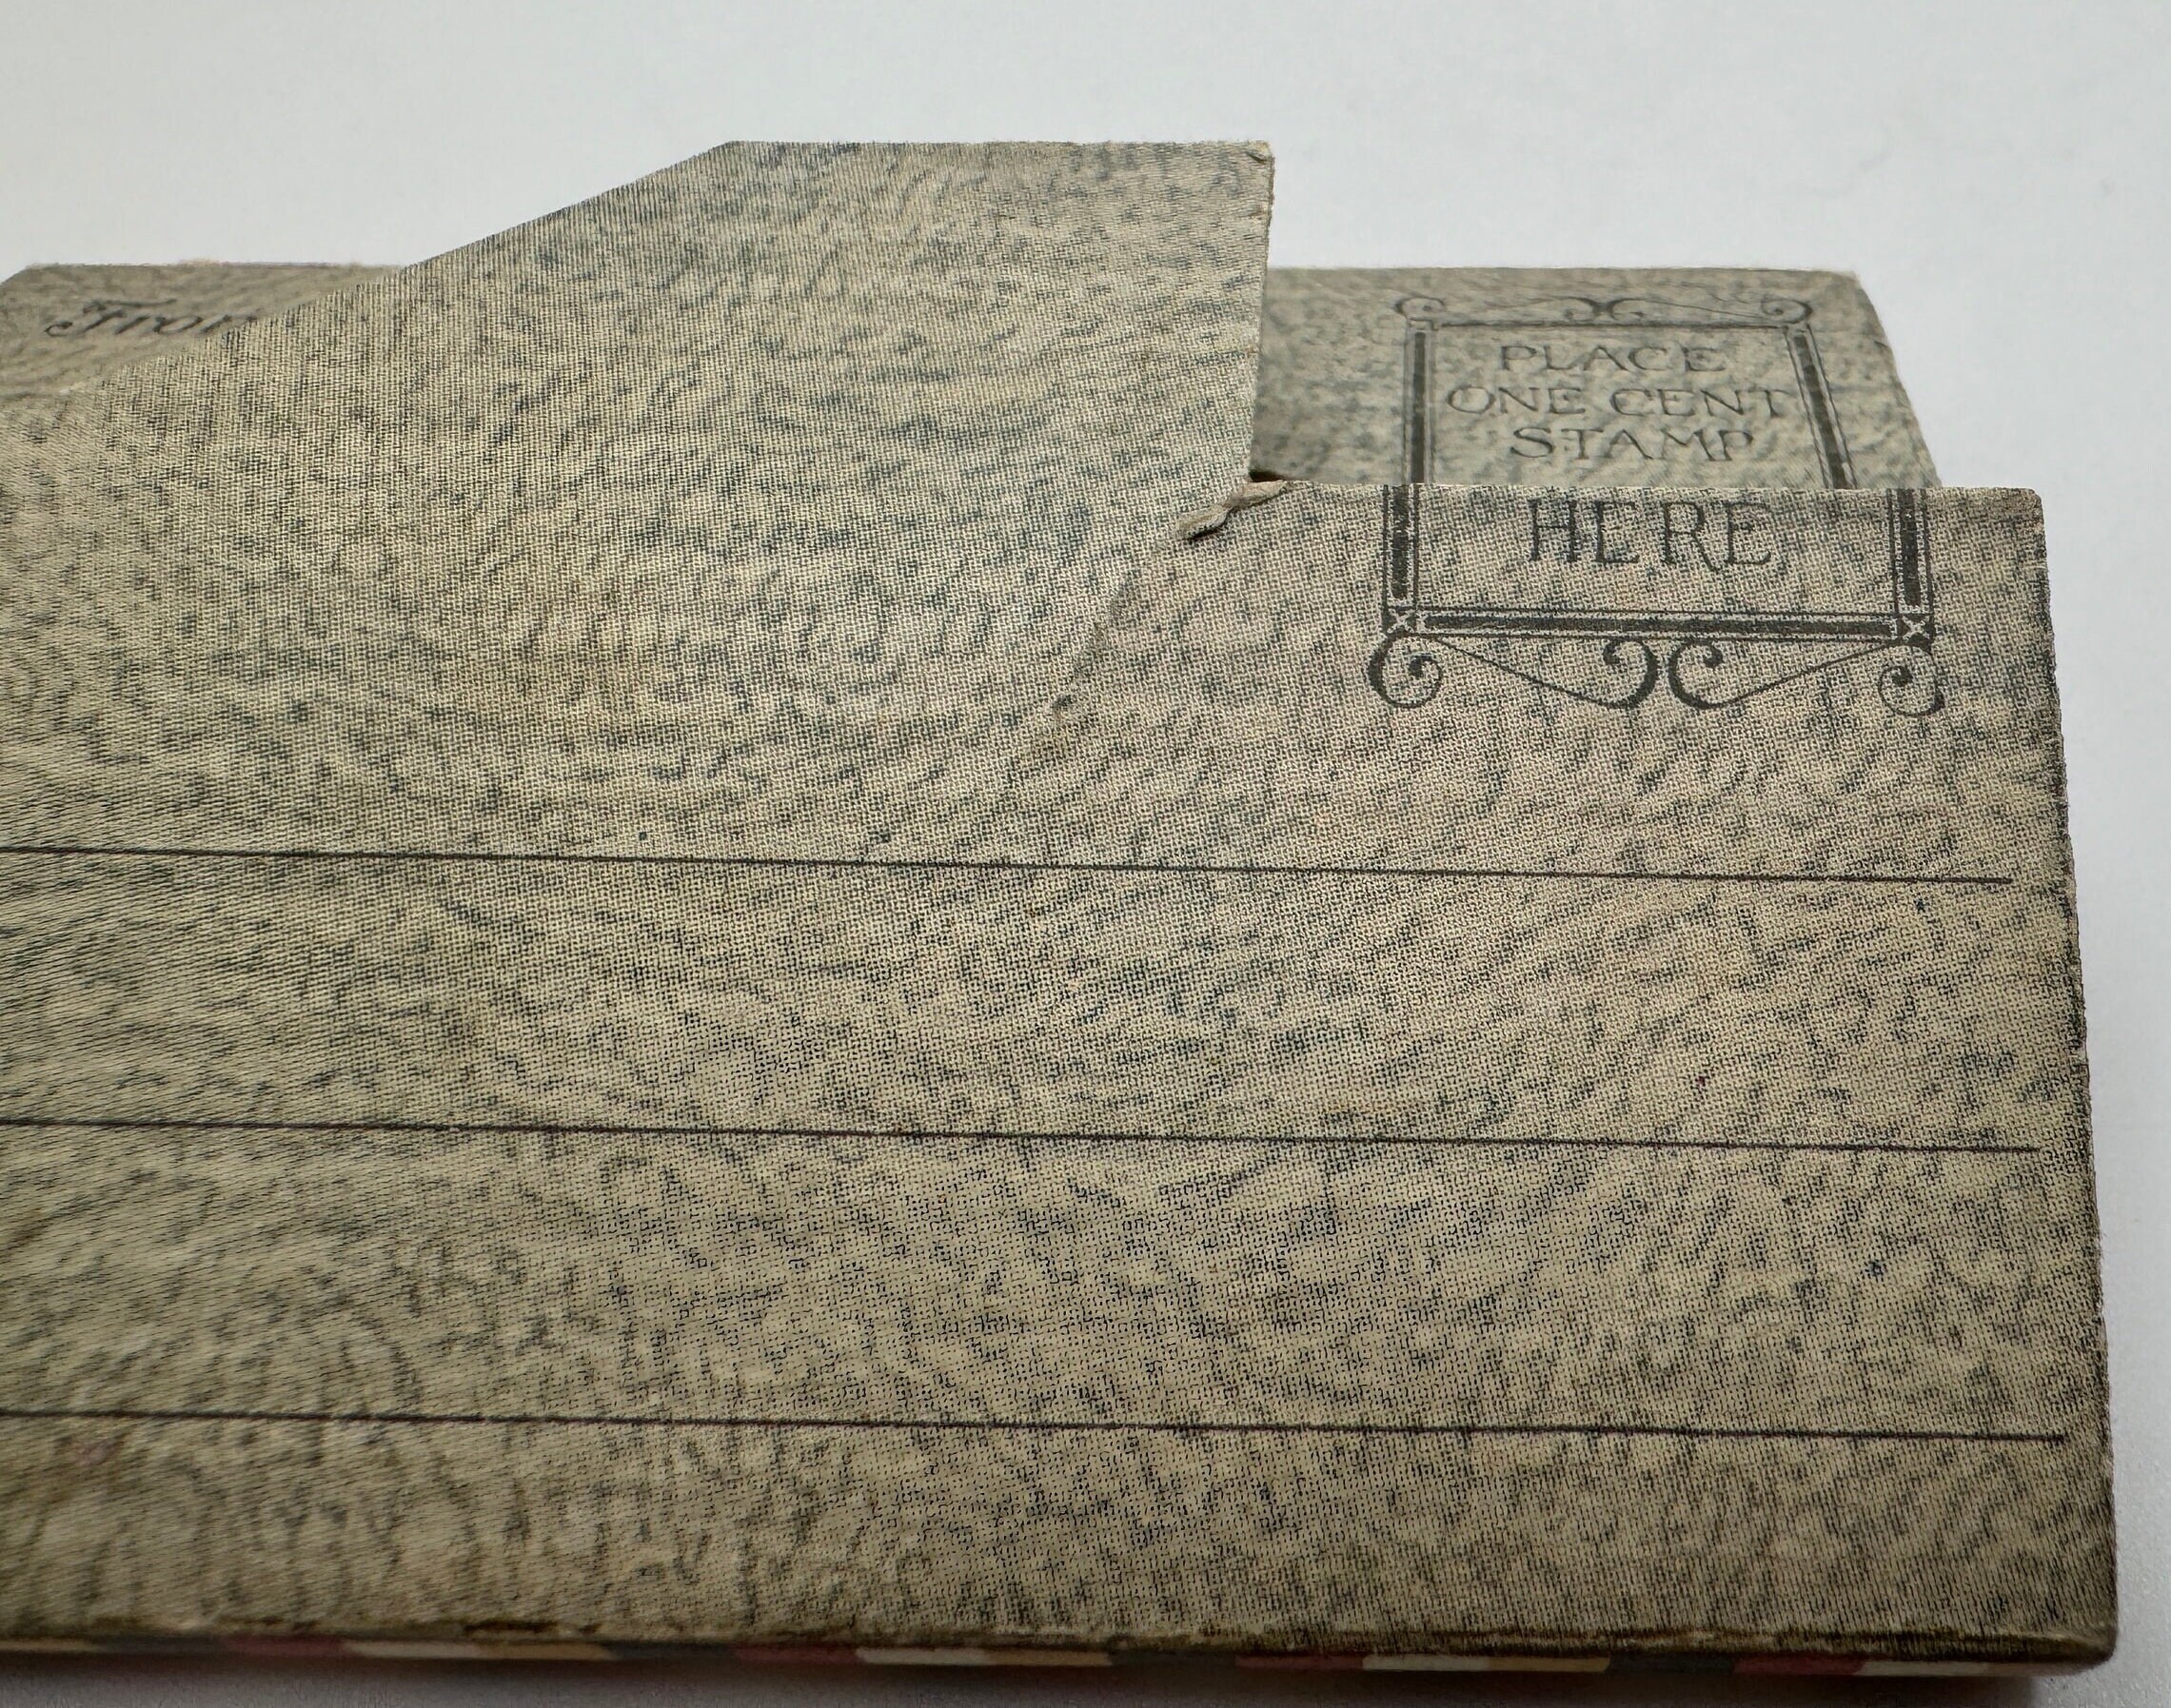 From
PLACE
ONE CENT
STAMP
HERE